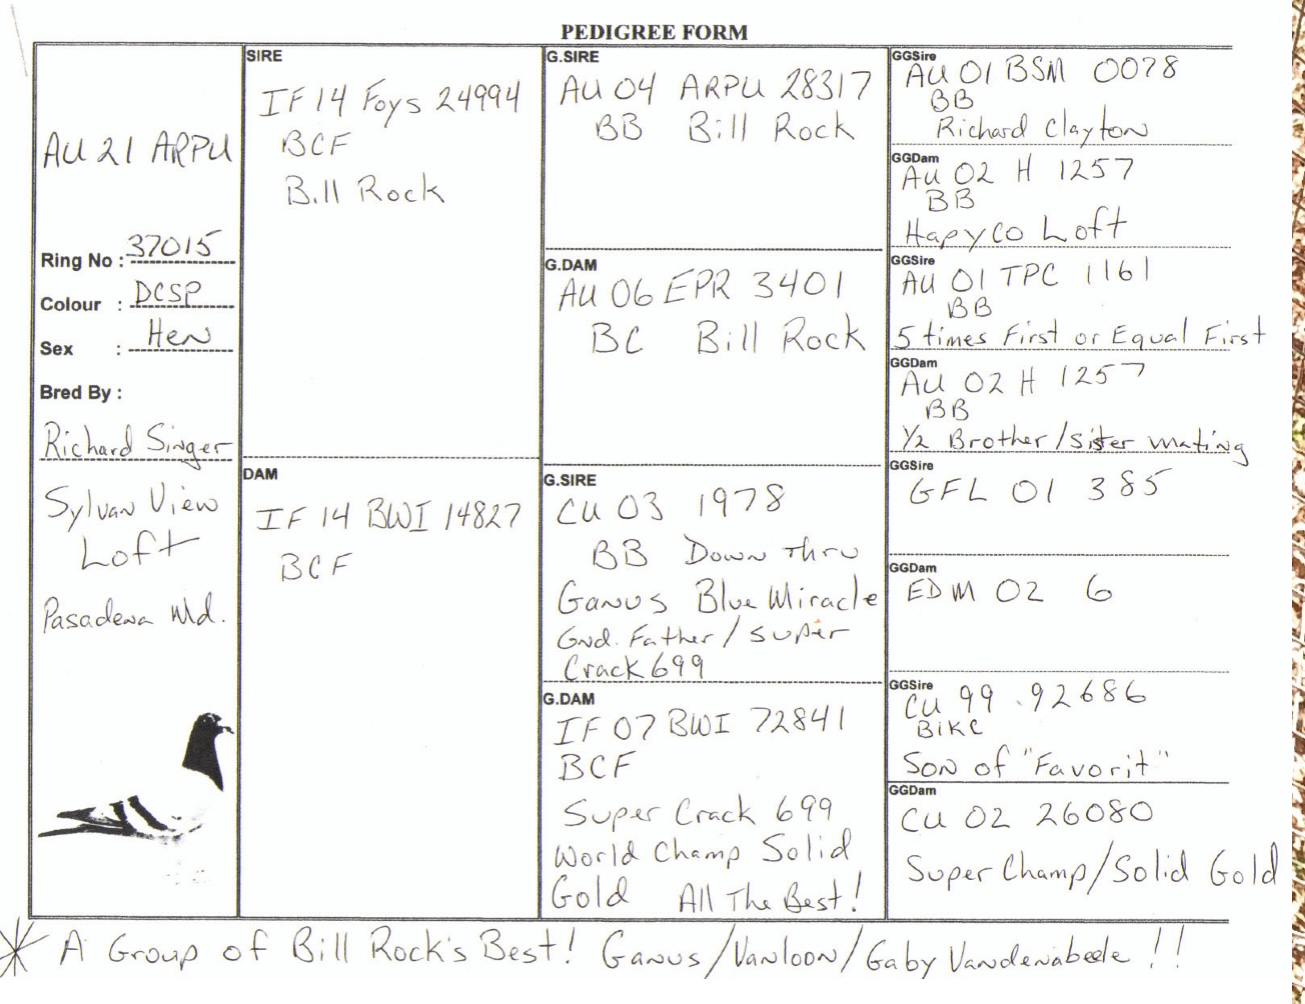 PEDIGREE FORM
AU 21 ARPU
Ring No : 37015
Colour : DCSP
Sex : Hen
Bred By :
Richard Singer
Sylvan View
Loft
Pasadena Md.
SIRE
IF 14 Foys 24994
BCF
Bill Rock
DAM
IF 14 BWI 14827
BCF
G.SIRE
AU 04 ARPU 28317
BB Bill Rock
G.DAM
AU 06 EPR 3401
BC Bill Rock
G.SIRE
CU 03 1978
BB Down Thru
Ganus Blue Miracle
Gnd. Father / Super
Crack 699
G.DAM
IF 07 BWI 72841
BCF
Super Crack 699
World Champ Solid
Gold All The Best!
GGSire
AU 01 BSM 0078
BB
Richard Clayton
GGDam
AU 02 H 1257
BB
Hapyco Loft
GGSire
AU 01 TPC 1161
BB
5 times First or Equal First
GGDam
AU 02 H 1257
BB
1/2 Brother/sister mating
GGSire
GFL 01 385
GGDam
EDM 02 6
GGSire
CU 99 .92686
BIKC
Son of "Favorit"
GGDam
CU 02 26080
Super Champ/Solid Gold
* A Group of Bill Rock's Best! Ganus/Vanloon/Gaby Vandenabeele !!